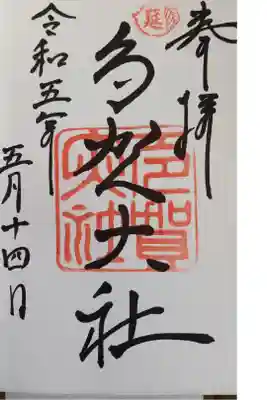 奉拝
多賀大社
多賀
大社
令和五年
五月十四日